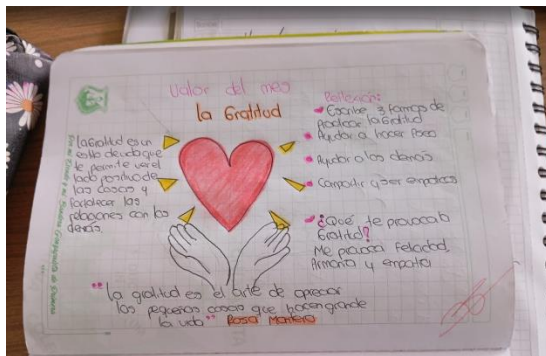 Valor del mes
la Gratitud
la Gratitud es un
estilo de vida que
te permite ver el
lado positivo de
las cosas y
fortalecer las
relaciones con los
demás.
Reflexión:
Escribe 3 formas de
practicar la Gratitud
Ayudar a hacer
Ayudar a los demás
Compartir y ser empaticos
¿Qué te provoca la
Gratitud?
Me provoca felicidad,
Armonia y empatia
"la gratitud es el arte de apreciar
las pequeñas cosas que hacen grande
la vida" Rosa Montero